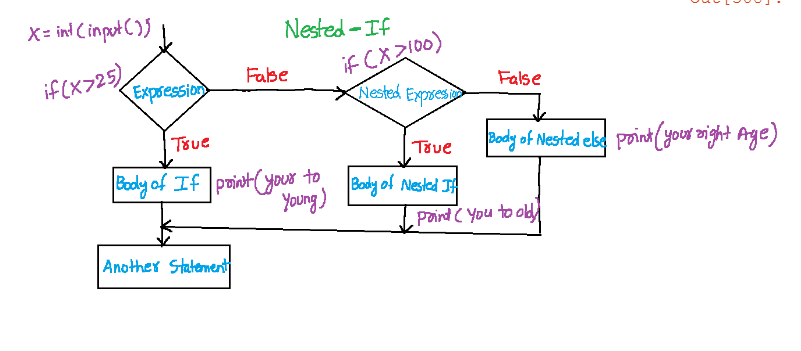 X = int(input())
Nested-If
if(X>25)
Expression
False
if(X>100)
Nested Expression
False
True
True
Body of Nested else
print(your right Age)
Body of If
print(your to
young)
Body of Nested If
print(you to old)
Another Statement